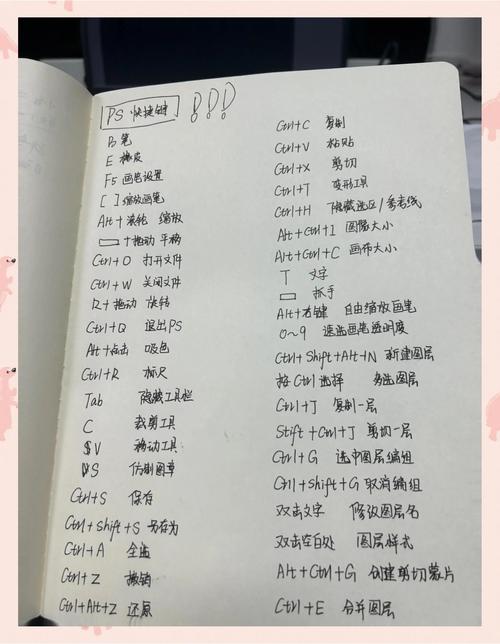 PS 快捷键 !!!
B 笔
E 橡皮
F5 画笔设置
[ ] 缩放画笔
Alt+滚轮 缩放
+拖动 平移
Ctrl+O 打开文件
Ctrl+W 关闭文件
R+拖动 旋转
Ctrl+Q 退出PS
Alt+点击 吸色
Ctrl+R 标尺
Tab 隐藏工具栏
C 裁剪工具
V 移动工具
S 仿制图章
Ctrl+S 保存
Ctrl+Shift+S 另存为
Ctrl+A 全选
Ctrl+Z 撤销
Ctrl+Alt+Z 还原
Ctrl+C 复制
Ctrl+V 粘贴
Ctrl+X 剪切
Ctrl+T 变形工具
Ctrl+H 隐藏选区/参考线
Alt+Ctrl+I 图像大小
Alt+Ctrl+C 画布大小
T 文字
抓手
Alt+右键 自由缩放画笔
0~9 速选画笔透明度
Ctrl+Shift+Alt+N 新建图层
按Ctrl选择 多选图层
Ctrl+J 复制一层
Stift+Ctrl+J 剪切一层
Ctrl+G 选中图层编组
Ctrl+Shift+G 取消编组
双击文字 修改图层名
双击空白处 图层样式
Alt+Ctrl+G 创建剪切蒙片
Ctrl+E 合并图层